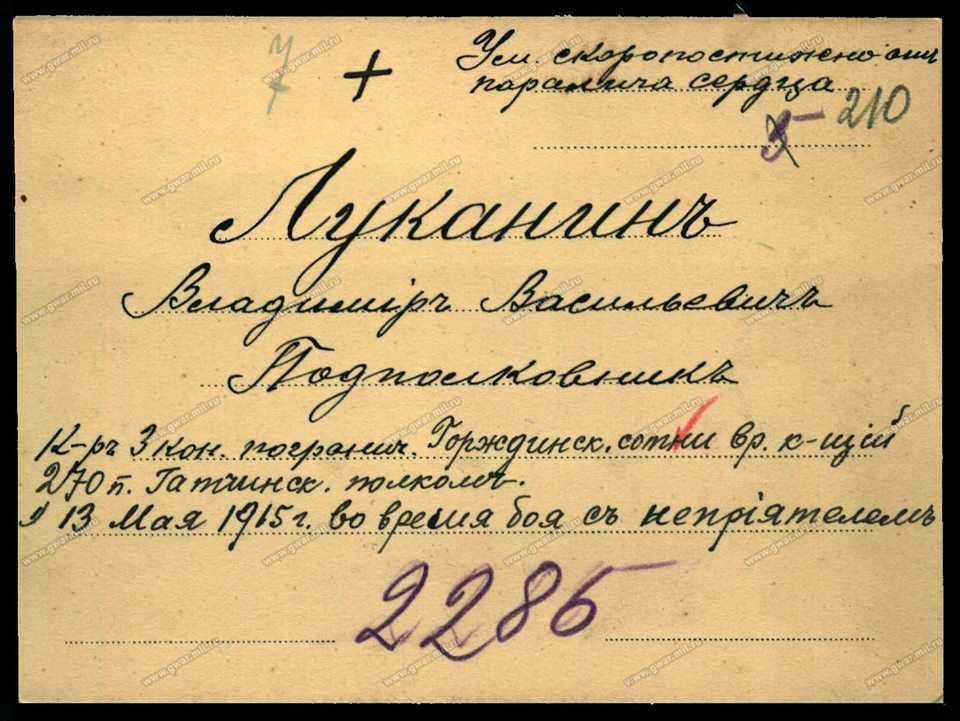 7 + Ум. скоропостижно отъ
паралича сердца
5 210
Луканинъ
Владиміръ Васильевичъ
Подполковникъ
К-ръ 3 кон. погранич. Горждинск. сотни вр. к-щій
270 п. Гатчинск. полкомъ.
13 Мая 1915 г. во время боя съ непріятелемъ
2285
www.gwar.mil.ru